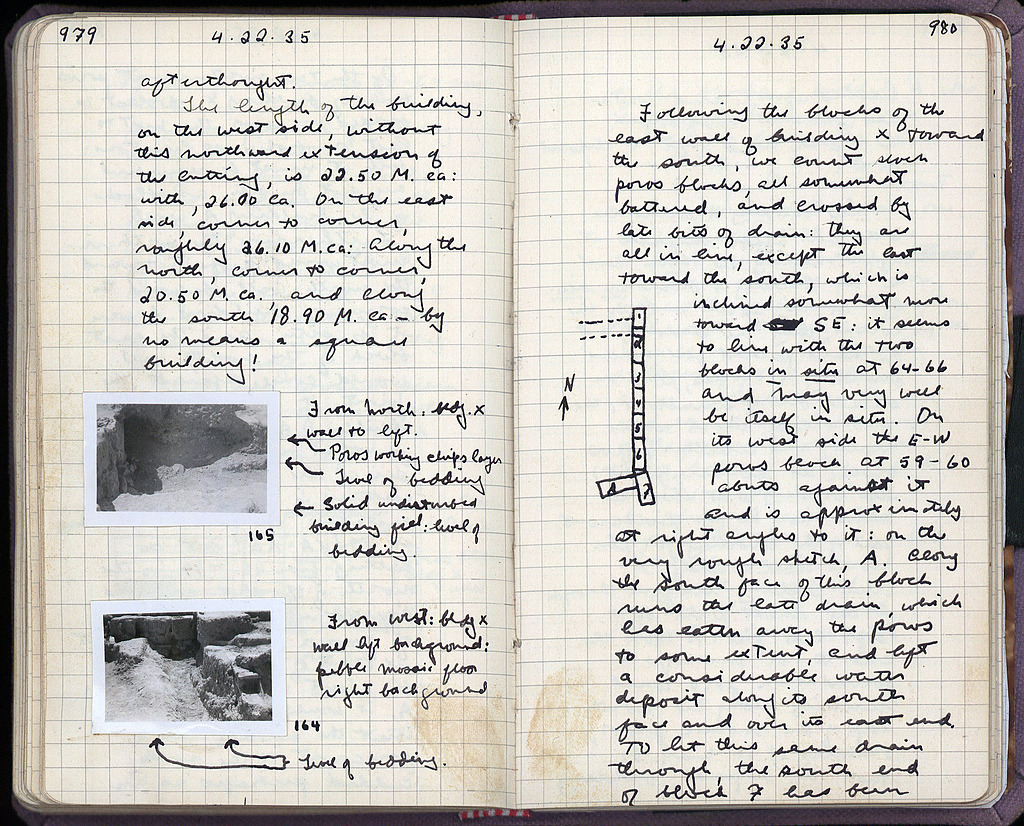 979
4.22.35
afterthought.
The length of the building,
on the west side, without
this northward extension of
the cutting, is 22.50 M. ca:
with, 26.00 ca. On the east
side, corner to corner,
roughly 26.10 M. ca: along the
north, corner to corner,
20.50 M. ca., and along
the south 18.90 M. ca – by
no means a square
building!
From north: bldg. X
wall to left.
Poros working chips layer
Level of bedding
Solid undisturbed
building fill: level of
bedding.
165
From west: bldg X
wall left background:
pebble mosaic floor
right background
164
Level of bedding.
980
4.22.35
Following the blocks of the
east wall of building X toward
the south, we count seven
poros blocks, all somewhat
battered, and crossed by
late bits of drain: they are
all in line, except the last
toward the south, which is
inclined somewhat more
toward SE: it seems
to line with the two
blocks in situ at 64-66
and may very well
be itself in situ. On
its west side the E-W
poros block at 59-60
abuts against it
and is approximately
at right angles to it: on the
very rough sketch, A. Along
the south face of this block
runs the late drain, which
has eaten away the poros
to some extent, and left
a considerable water
deposit along its south
face and over its east end.
To let this same drain
through, the south end
of block 7 has been
1
2
3
4
5
6
7
A
N